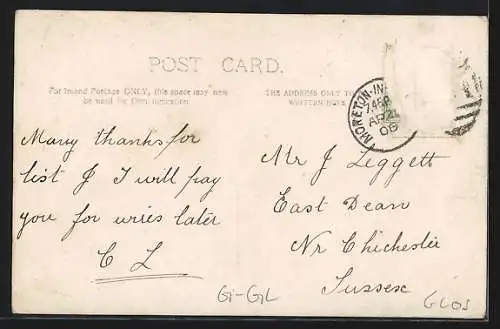 POST CARD.
For Inland Postage ONLY, this space may now
be used for Communication
THE ADDRESS ONLY TO
WRITTEN HERE
MORETON-IN-
AP 21
08
Many thanks for
list & I will pay
you for wires later
C L
Mr J Leggett
East Dean
Nr Chichester
Sussex
Gi-GiL
GLOS